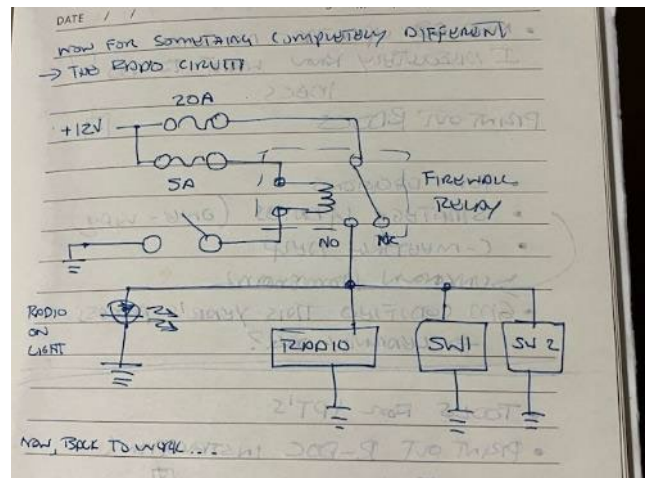 DATE / /
NOW FOR SOMETHING COMPLETELY DIFFERENT
→ THE RADIO CIRCUIT
20A
+12V
5A
FIREWALL
RELAY
NO NC
RADIO
ON
LIGHT
RADIO SW1 SW2
NOW, BACK TO WORK...